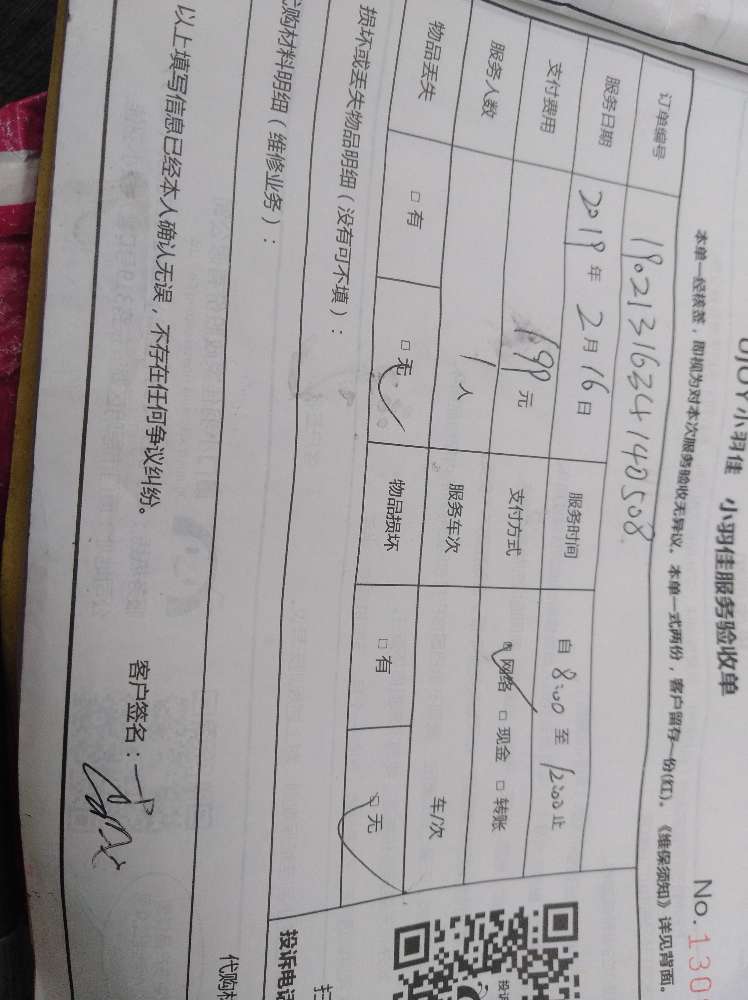 UJOY小羽佳 小羽佳服务验收单
No.130
本单一经核签，即视为对本次服务验收无异议。本单一式两份，客户留存一份(红)。《维保须知》详见背面。
订单编号 1902131634140508
服务日期 2019年2月16日 服务时间 自8:00至12:00止
支付费用 198元 支付方式 □网络 □现金 □转账
服务人数 1人 服务车次 车/次
物品丢失 □有 □无 物品损坏 □有 □无
损坏或丢失物品明细（没有可不填）：
代购材料明细（维修业务）：
代购材
投诉电话
以上填写信息已经本人确认无误，不存在任何争议纠纷。
客户签名：